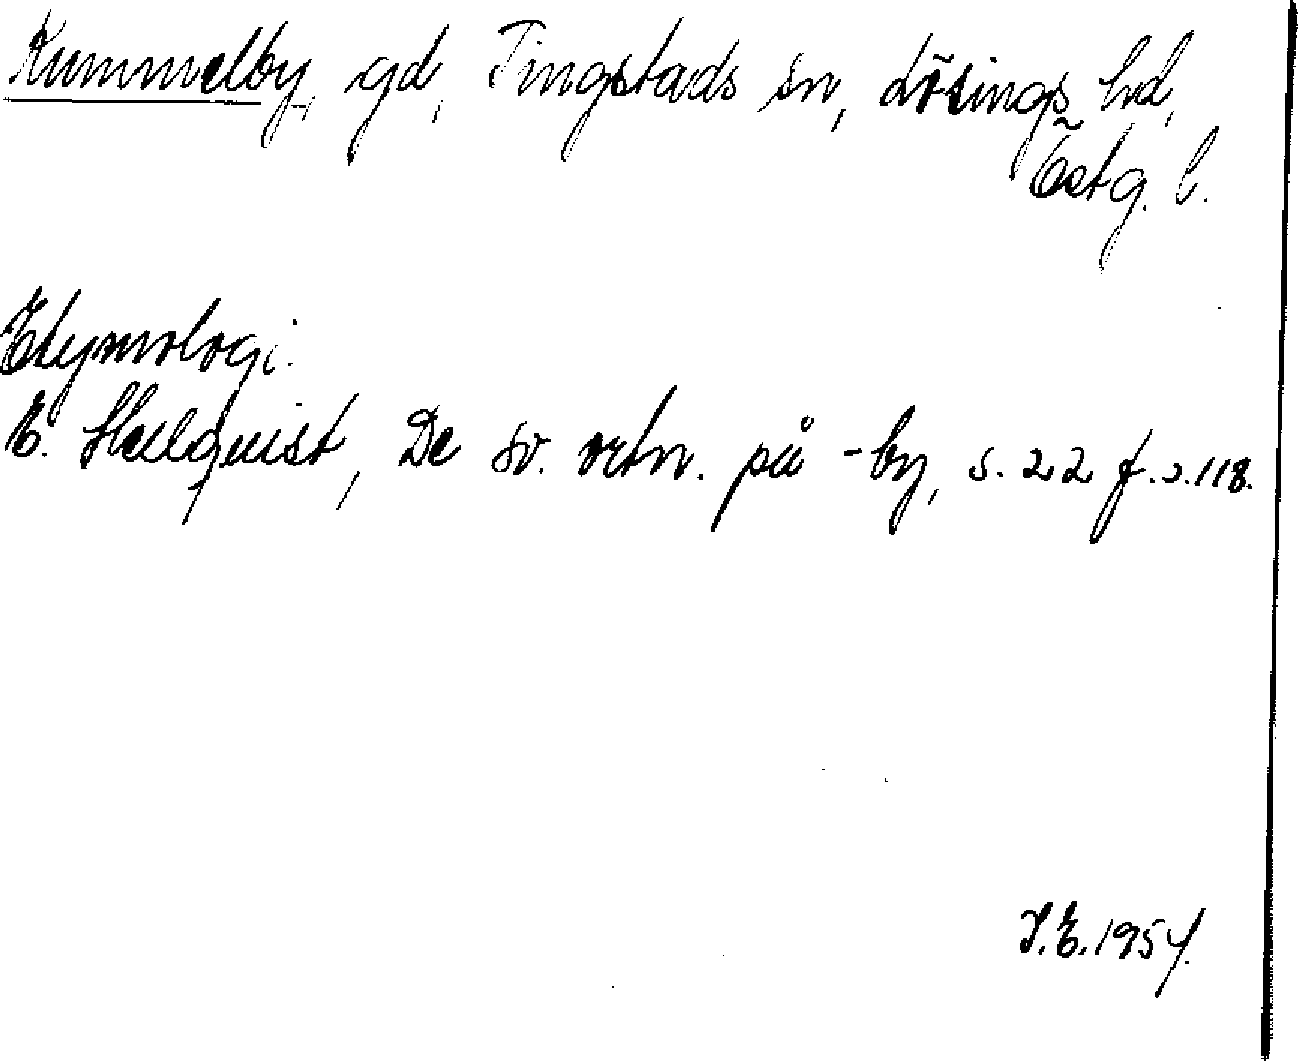 Kummelby, gd, Tingstads sn, Lösings hd,
Östg. l.
Etymologi:
E. Hellquist, De sv. ortn. på -by, s. 22 f. o. 118.
I.E. 1954.